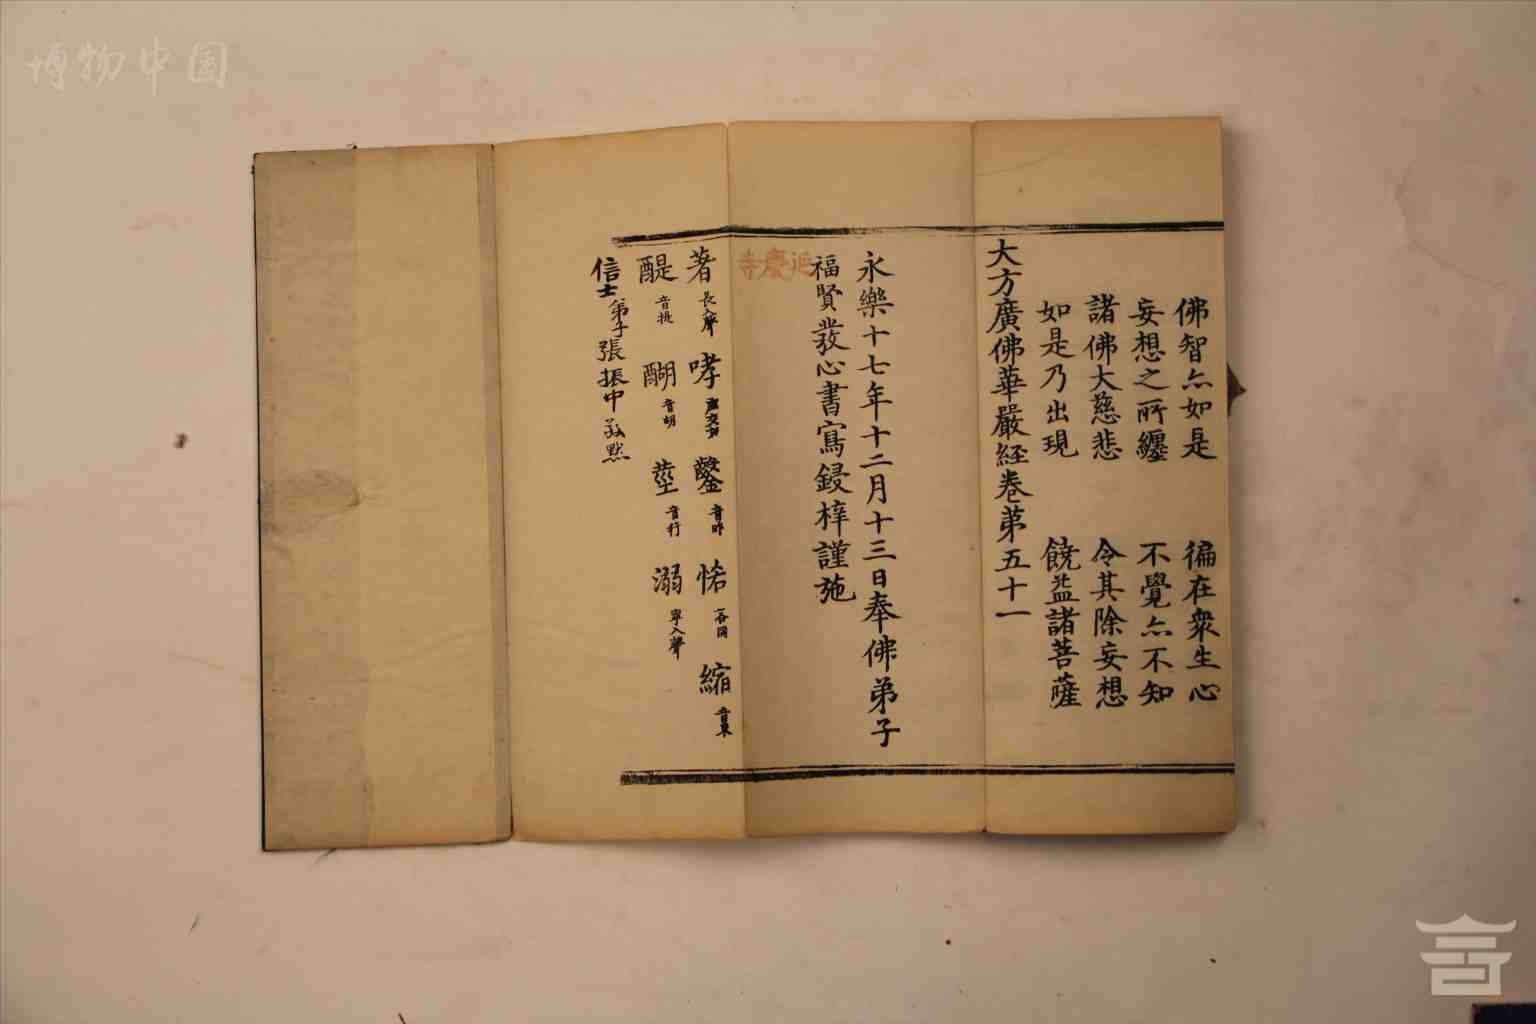 佛智亦如是　徧在衆生心
妄想之所纏　不覺亦不知
諸佛大慈悲　令其除妄想
如是乃出現　饒益諸菩薩
大方廣佛華嚴経卷第五十一
永樂十七年十二月十三日奉佛弟子
福賢發心書寫鋟梓謹施
延慶寺
著長入聲　哮虛交切　鑿音昨　恡吝同　縮音
醍音提　醐音胡　莖音行　溺寧入聲
信士弟子張振中敬點
博物中国